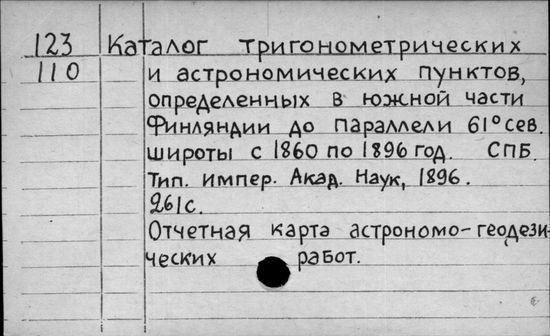 123 Каталог тригонометрических
110 и астрономических пунктов,
определенных в южной части
Финляндии до параллели 61° сев.
широты с 1860 по 1896 год. СПБ.
Тип. импер. Акад. Наук, 1896.
261с.
Отчетная карта астрономо-геодези-
ческих работ.